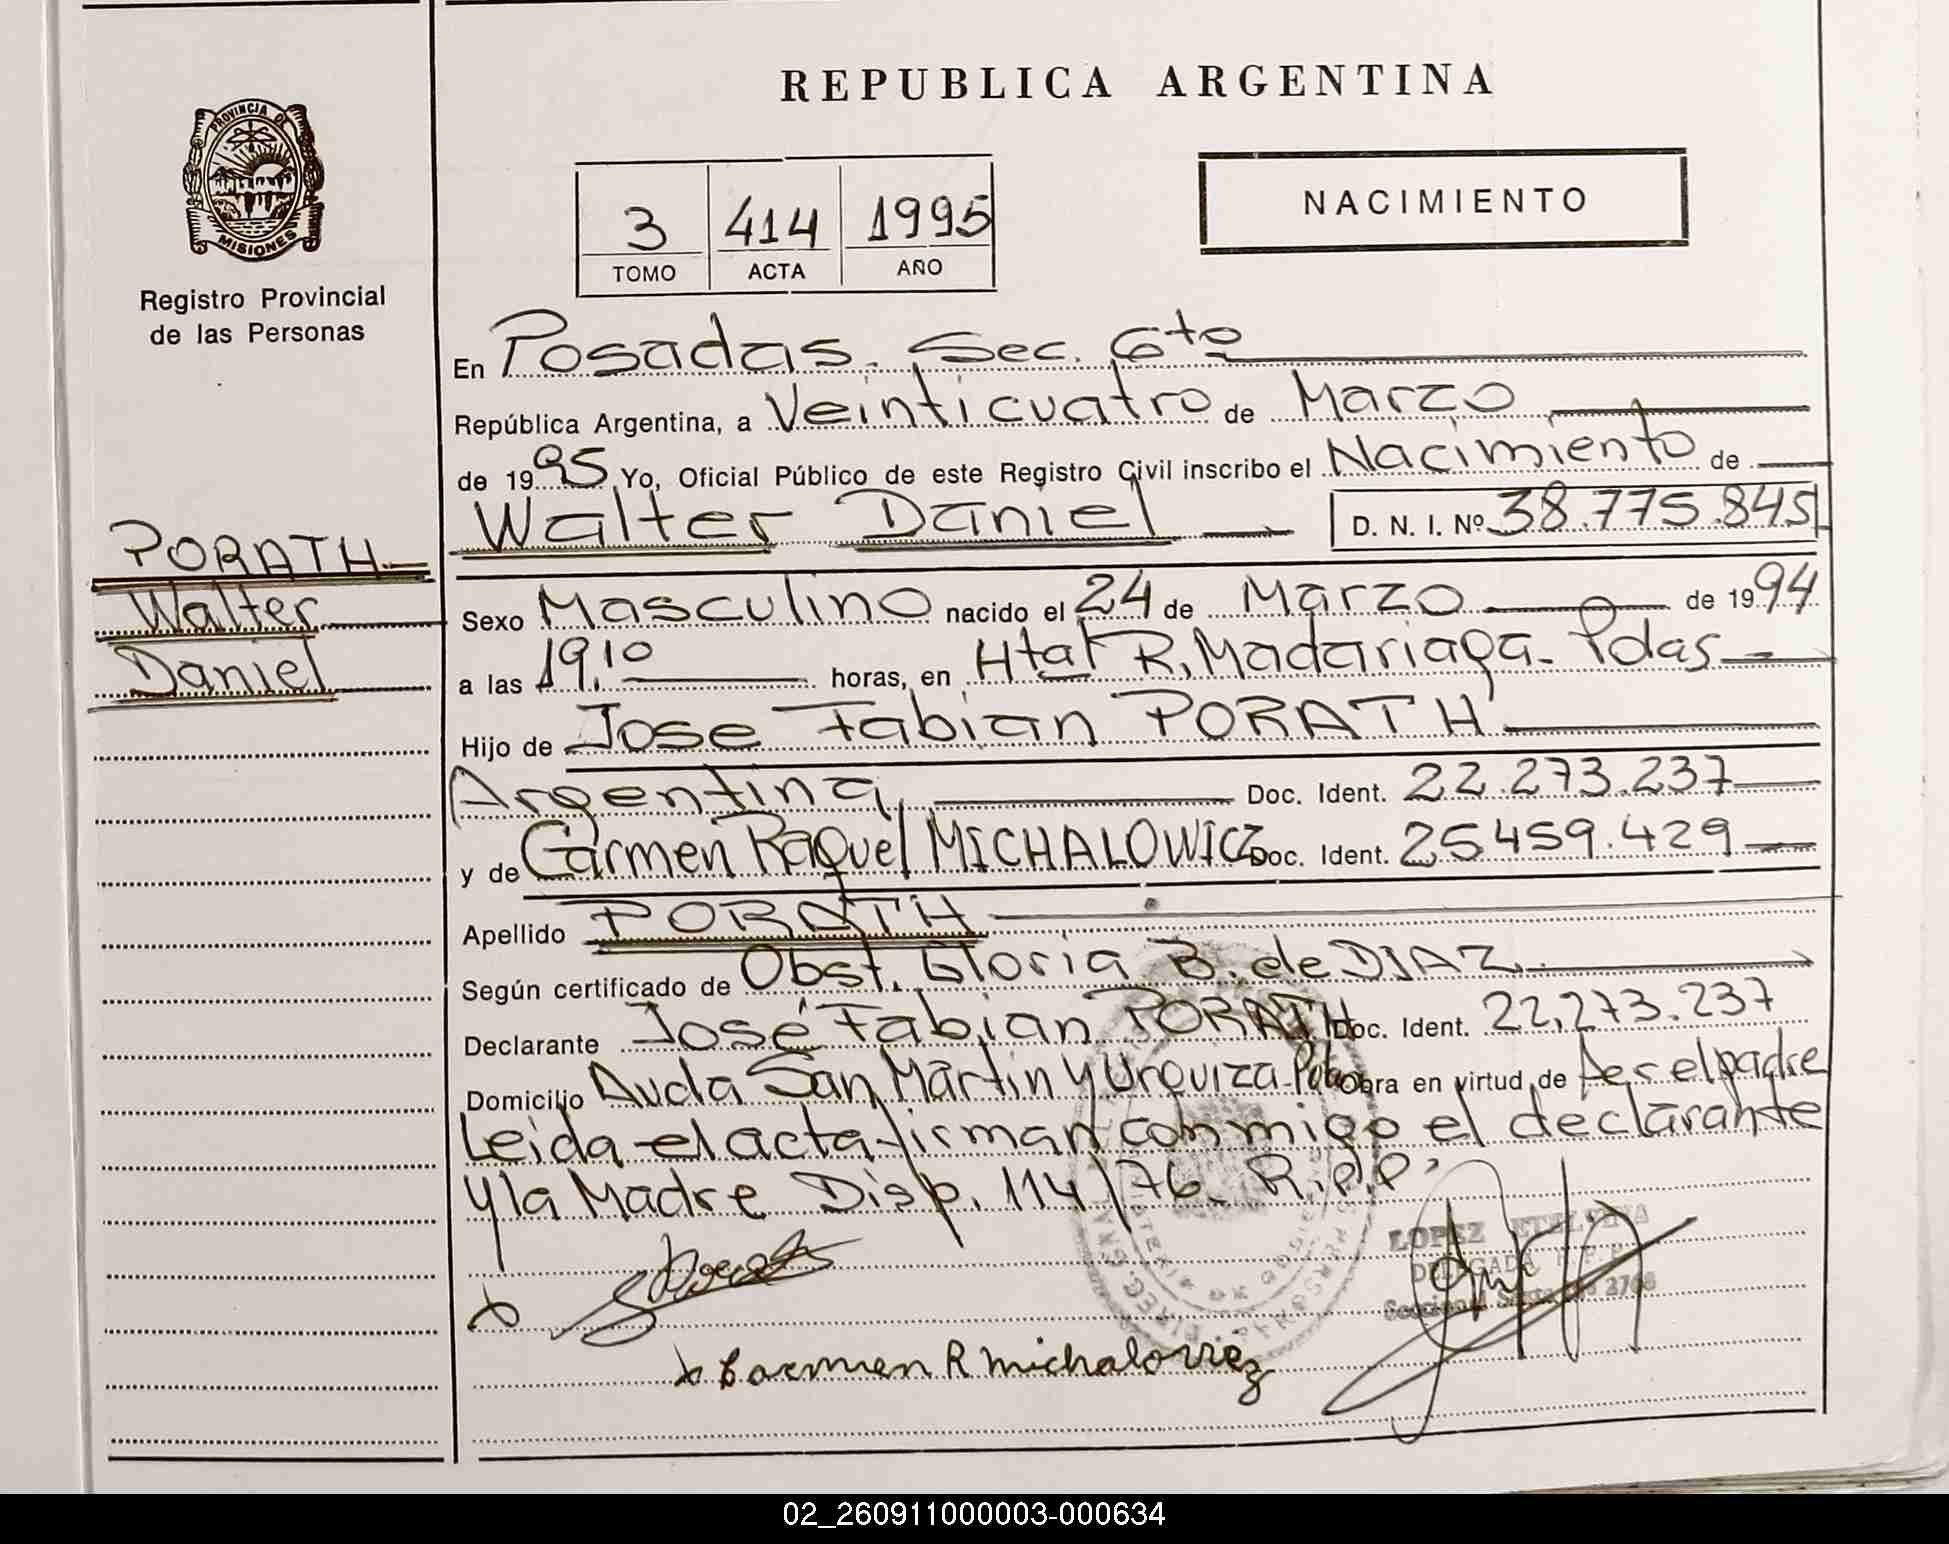 PROVINCIA DE
MISIONES
Registro Provincial
de las Personas
PORATH
Walter
Daniel
REPUBLICA ARGENTINA
3 414 1995
TOMO ACTA AÑO
NACIMIENTO
En Posadas. Sec. 6to
República Argentina, a Veinticuatro de Marzo
de 1995 Yo, Oficial Público de este Registro Civil inscribo el Nacimiento de
Walter Daniel D. N. I. Nº 38.775.845
Sexo Masculino nacido el 24 de Marzo de 1994
a las 19,10 horas, en Htal R. Madariaga. Pdas
Hijo de Jose Fabian PORATH
Argentina, Doc. Ident. 22.273.237
y de Carmen Raquel MICHALOWICZ Doc. Ident. 25459.429
Apellido PORATH
Según certificado de Obst. Gloria B. de DIAZ
Declarante José Fabian PORATH Doc. Ident. 22,273.237
Domicilio Avda San Martin y Urquiza Obra en virtud de Ser el padre
Leida el acta firman conmigo el declarante
y la Madre Disp. 114/76 R.P.P
LOPEZ ETELVINA
DELEGADA R.P.P.
Carmen R michalovicz
02_260911000003-000634